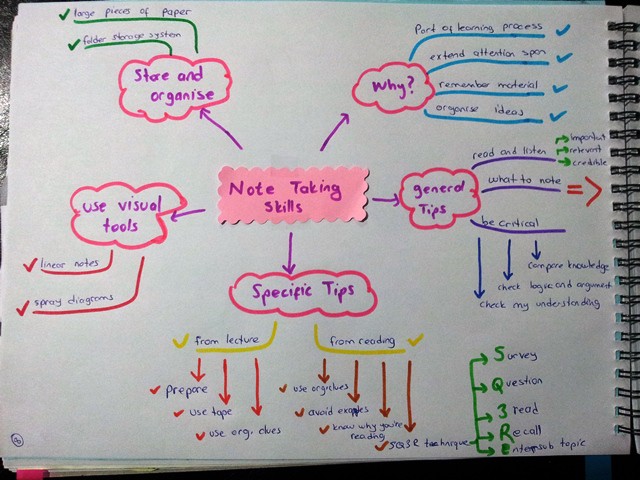 large pieces of paper
folder storage system
Store and
organise
Why?
Part of learning process
extend attention span
remember material
organise ideas
Note Taking
Skills
general
Tips
read and listen
important
relevant
credible
what to note
be critical
compare knowledge
check logic and argument
check my understanding
use visual
tools
linear notes
spray diagrams
Specific Tips
from lecture
prepare
use tape
use org. clues
from reading
use org.clues
avoid examples
know why you're
reading
SQ3R technique
Survey
Question
3 read
Recall
sub topic